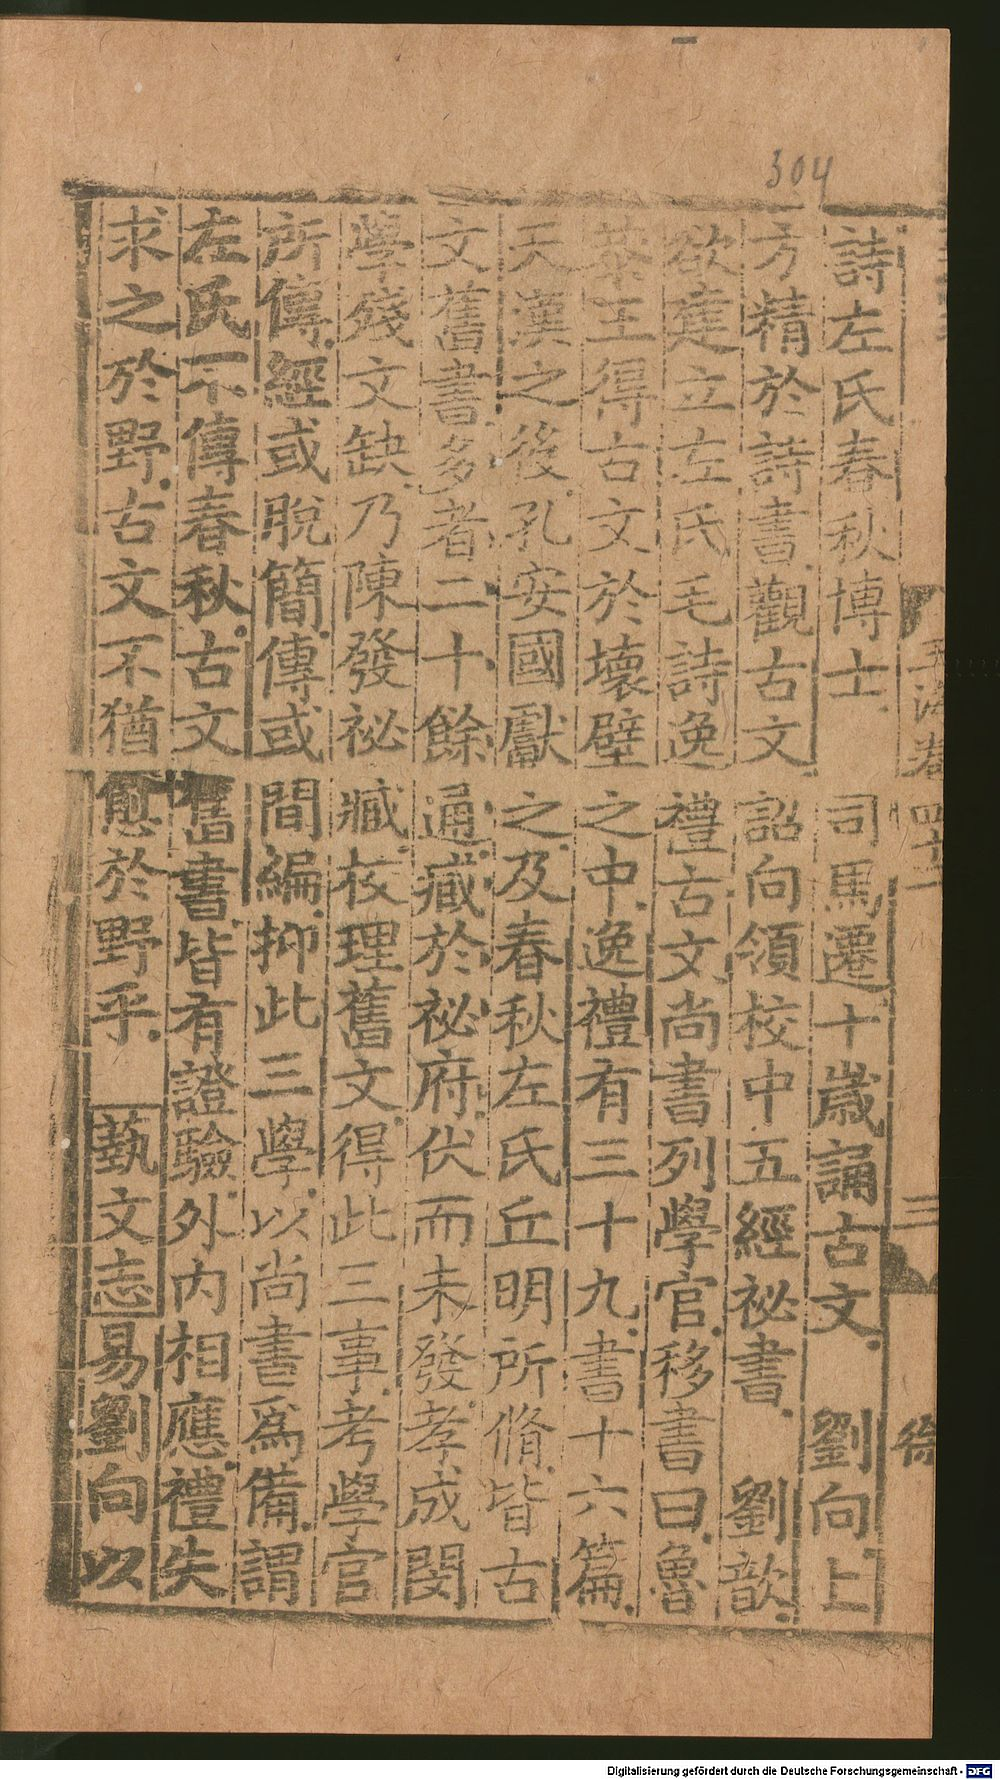 304
詩左氏春秋博士 司馬遷十歲誦古文 劉向上
方精於詩書觀古文 詔向領校中五經祕書 劉歆
欲建立左氏毛詩逸禮古文尚書列學官移書曰魯
恭王得古文於壞壁之中逸禮有三十九書十六篇
天漢之後孔安國獻之及春秋左氏丘明所脩皆古
文舊書多者二十餘通藏於祕府伏而未發孝成閔
學殘文缺乃陳發祕臧校理舊文得此三事考學官
所傳經或脫簡傳或間編抑此三學以尚書爲備謂
左氏不傳春秋古文舊書皆有證驗外内相應禮失
求之於野古文不猶愈於野乎 藝文志易劉向以
玉海卷四十二 三
Digitalisierung gefördert durch die Deutsche Forschungsgemeinschaft - DFG